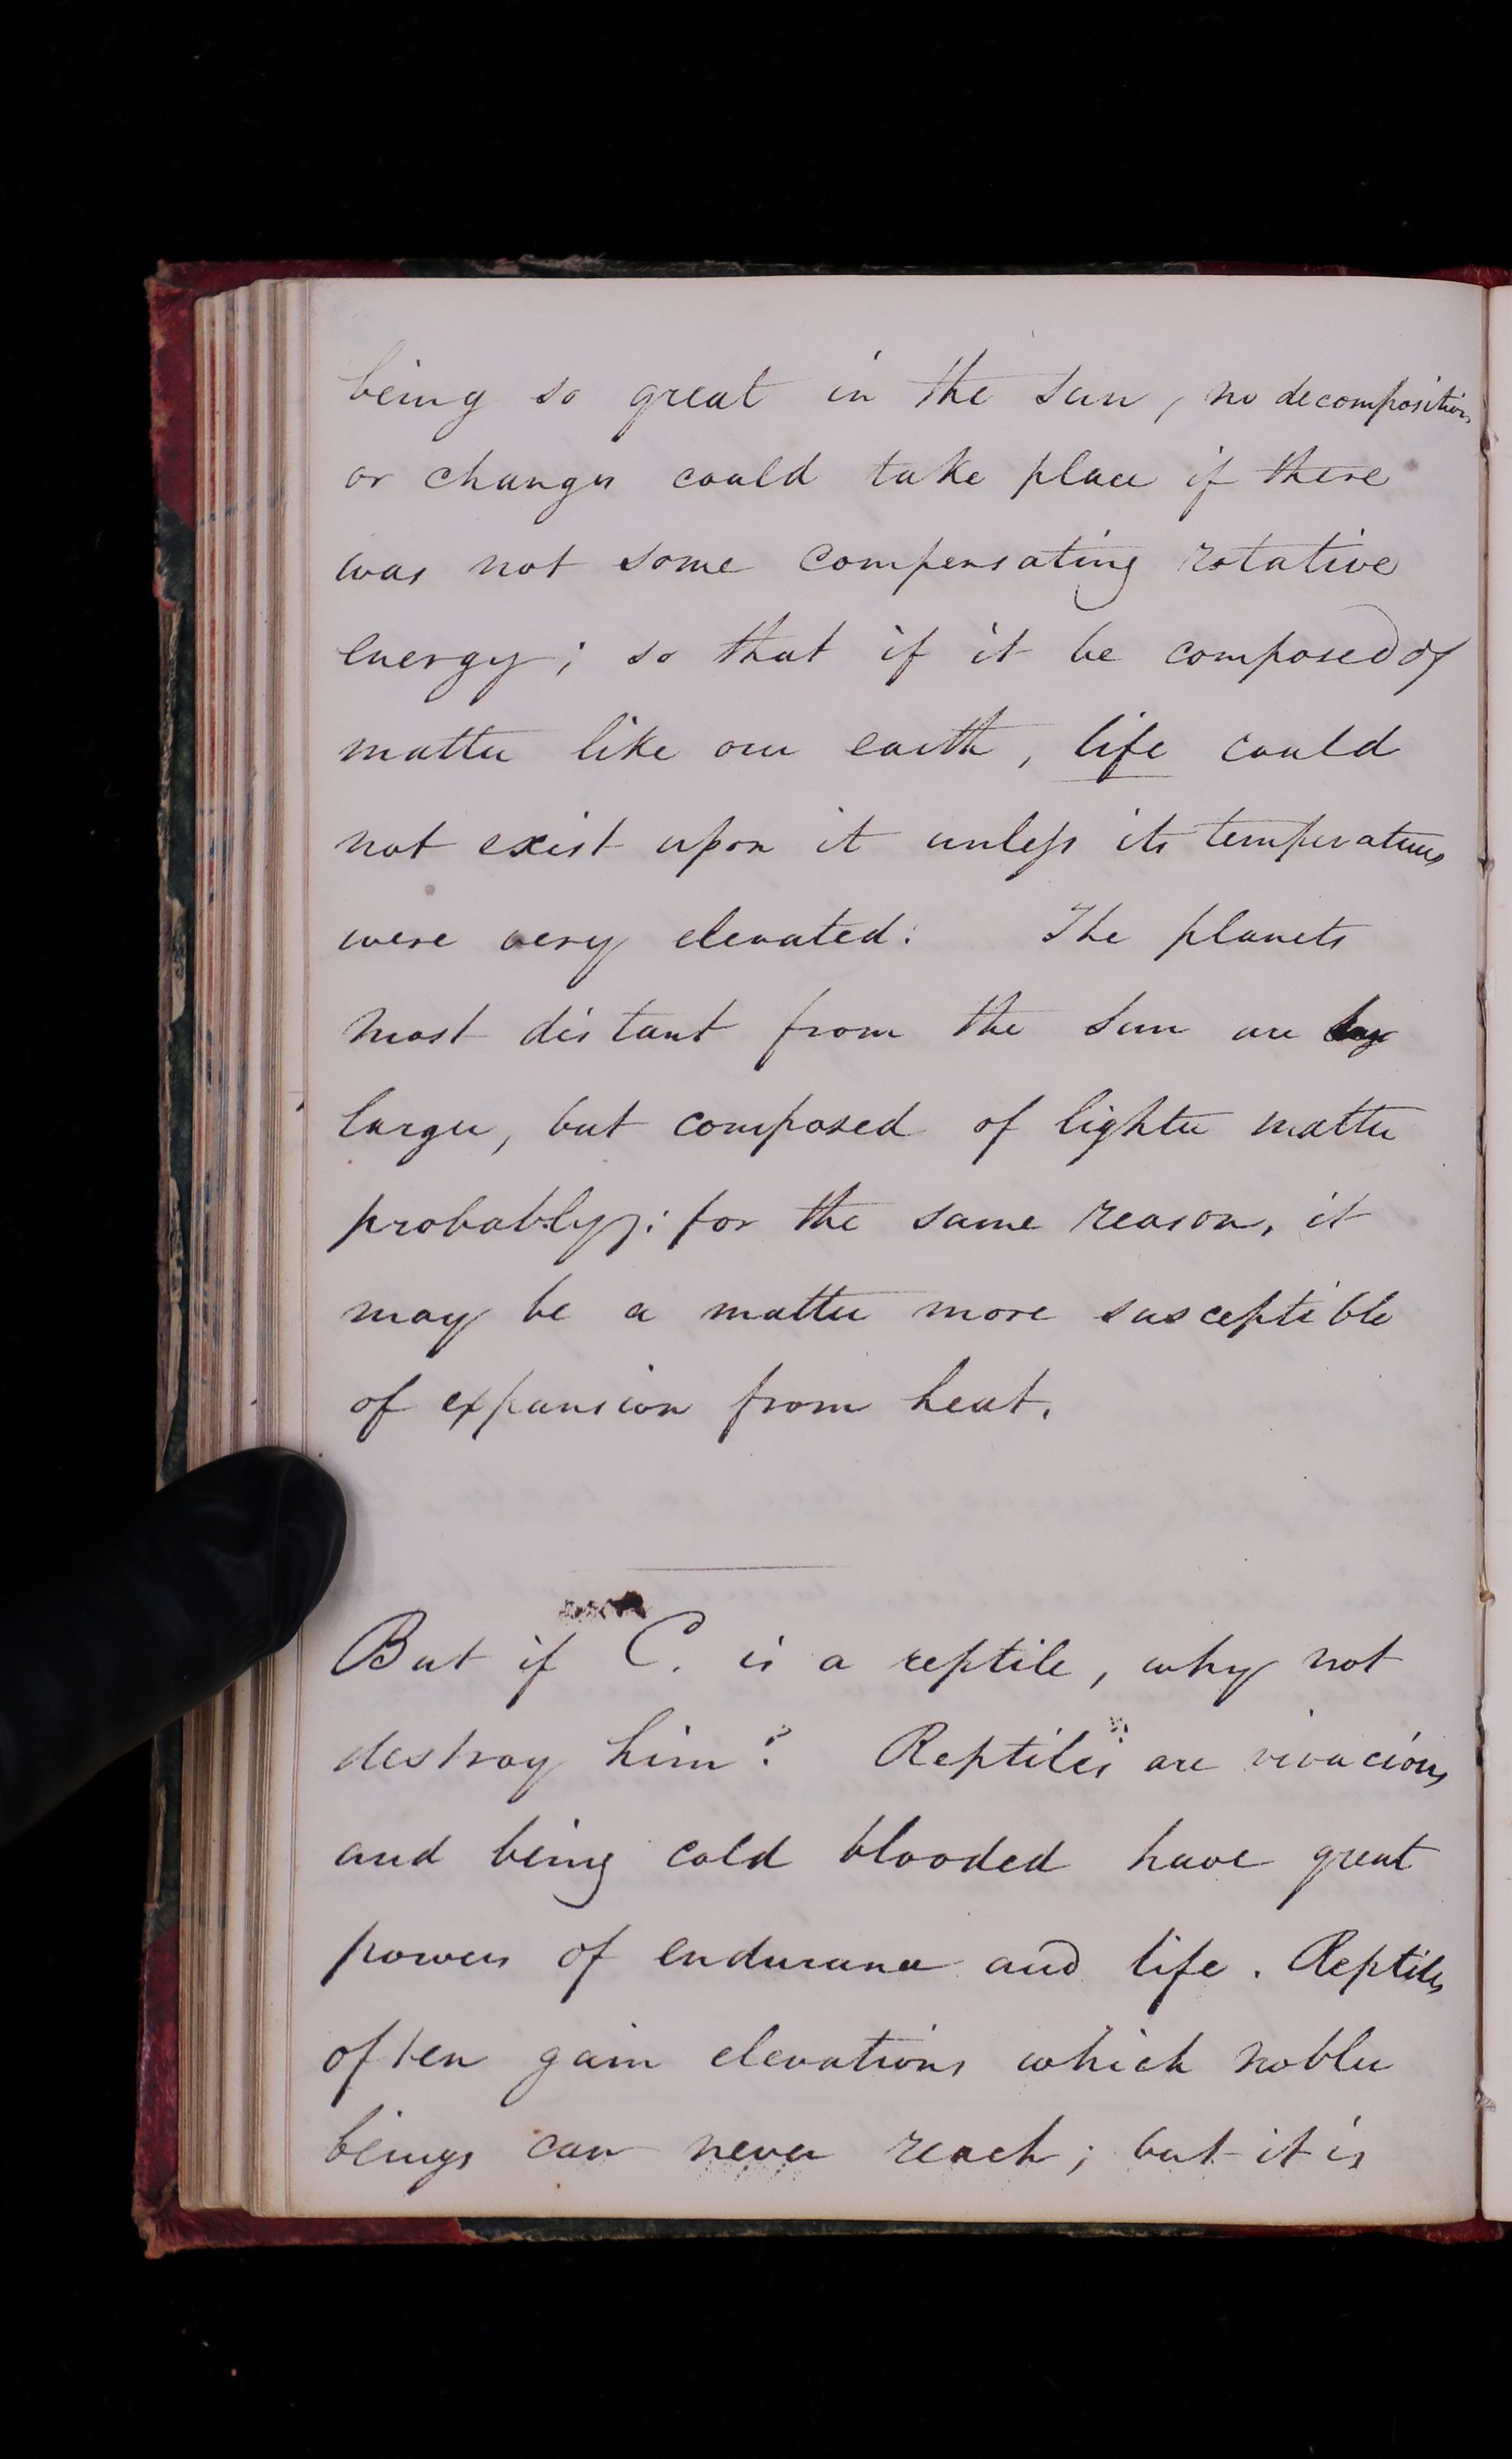 being so great in the sun, no decomposition
or changes could take place if there
was not some compensating rotative
energy; so that if it be composed of
matter like our earth, life could
not exist upon it unless its temperature
were very elevated. The planets
most distant from the sun are
larger, but composed of lighter matter
probably; for the same reason, it
may be a matter more susceptible
of expansion from heat.
But if C. is a reptile, why not
destroy him? Reptiles are vivacious
and being cold blooded have great
powers of endurance and life. Reptiles
often gain elevations which nobler
beings can never reach; but it is